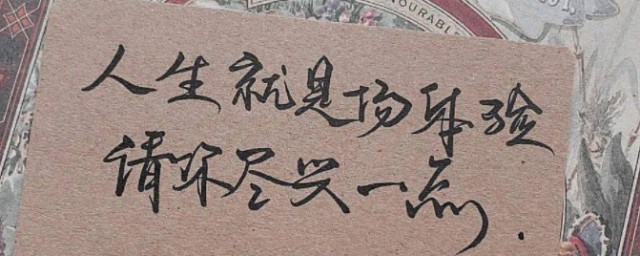 NOURABLE
人生就是场体验
请你尽兴一点.